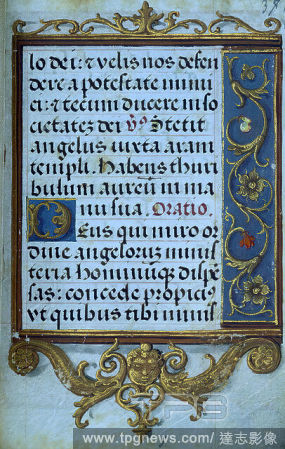 38
lo dei: & velis nos defen
dere a potestate inimi
ci: & tecum ducere in so
cietatez dei Vs. Stetit
angelus iuxta aram
templi. Habens thuri
bulum aureū in ma
nu sua. Oratio.
Deus qui miro or
dine angelorum minis
teria hominūq; dispē
sas: concede propici9
vt quibus tibi minis
TPG
www.tpgnews.com/ 達志影像